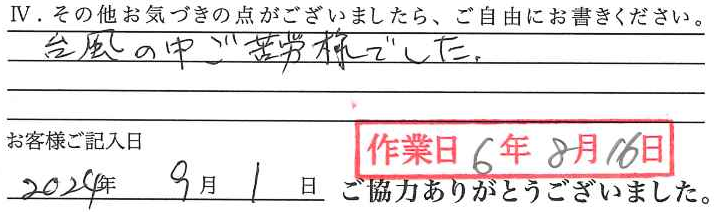 Ⅳ.その他お気づきの点がございましたら、ご自由にお書きください。
台風の中ご苦労様でした。
お客様ご記入日
作業日 6年 8月16日
2024年 9月 1 日
ご協力ありがとうございました。